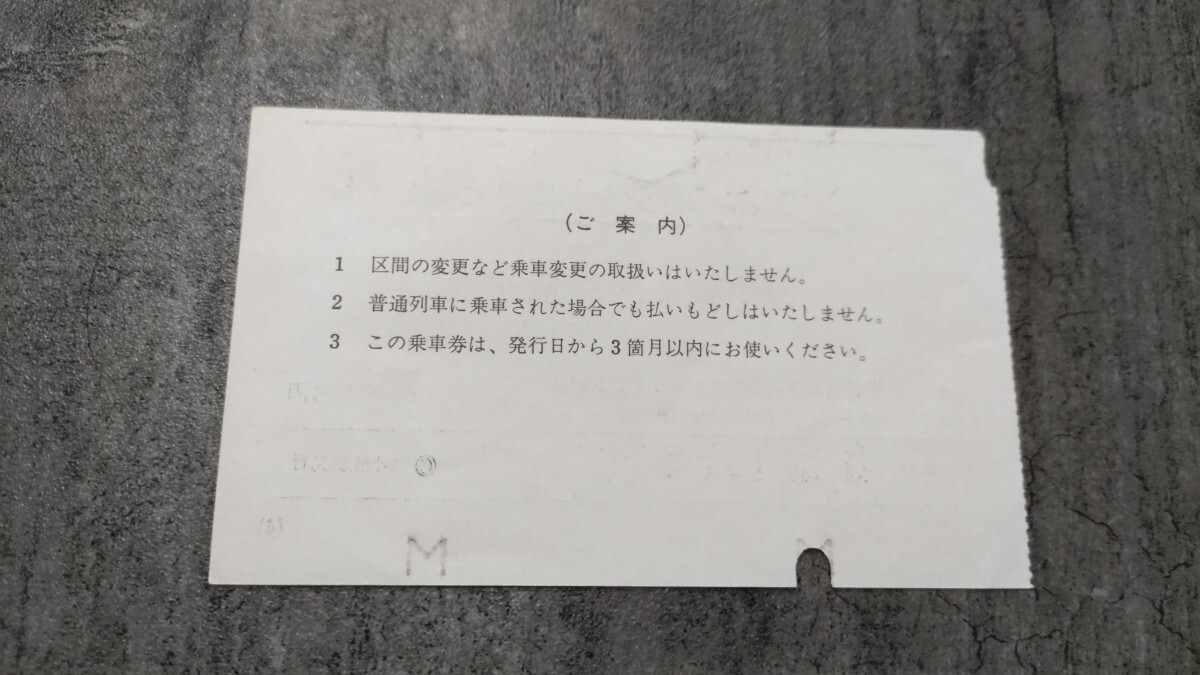 (ご案内)
1 区間の変更など乗車変更の取扱いはいたしません。
2 普通列車に乗車された場合でも払いもどしはいたしません。
3 この乗車券は、発行日から3箇月以内にお使いください。
M
M